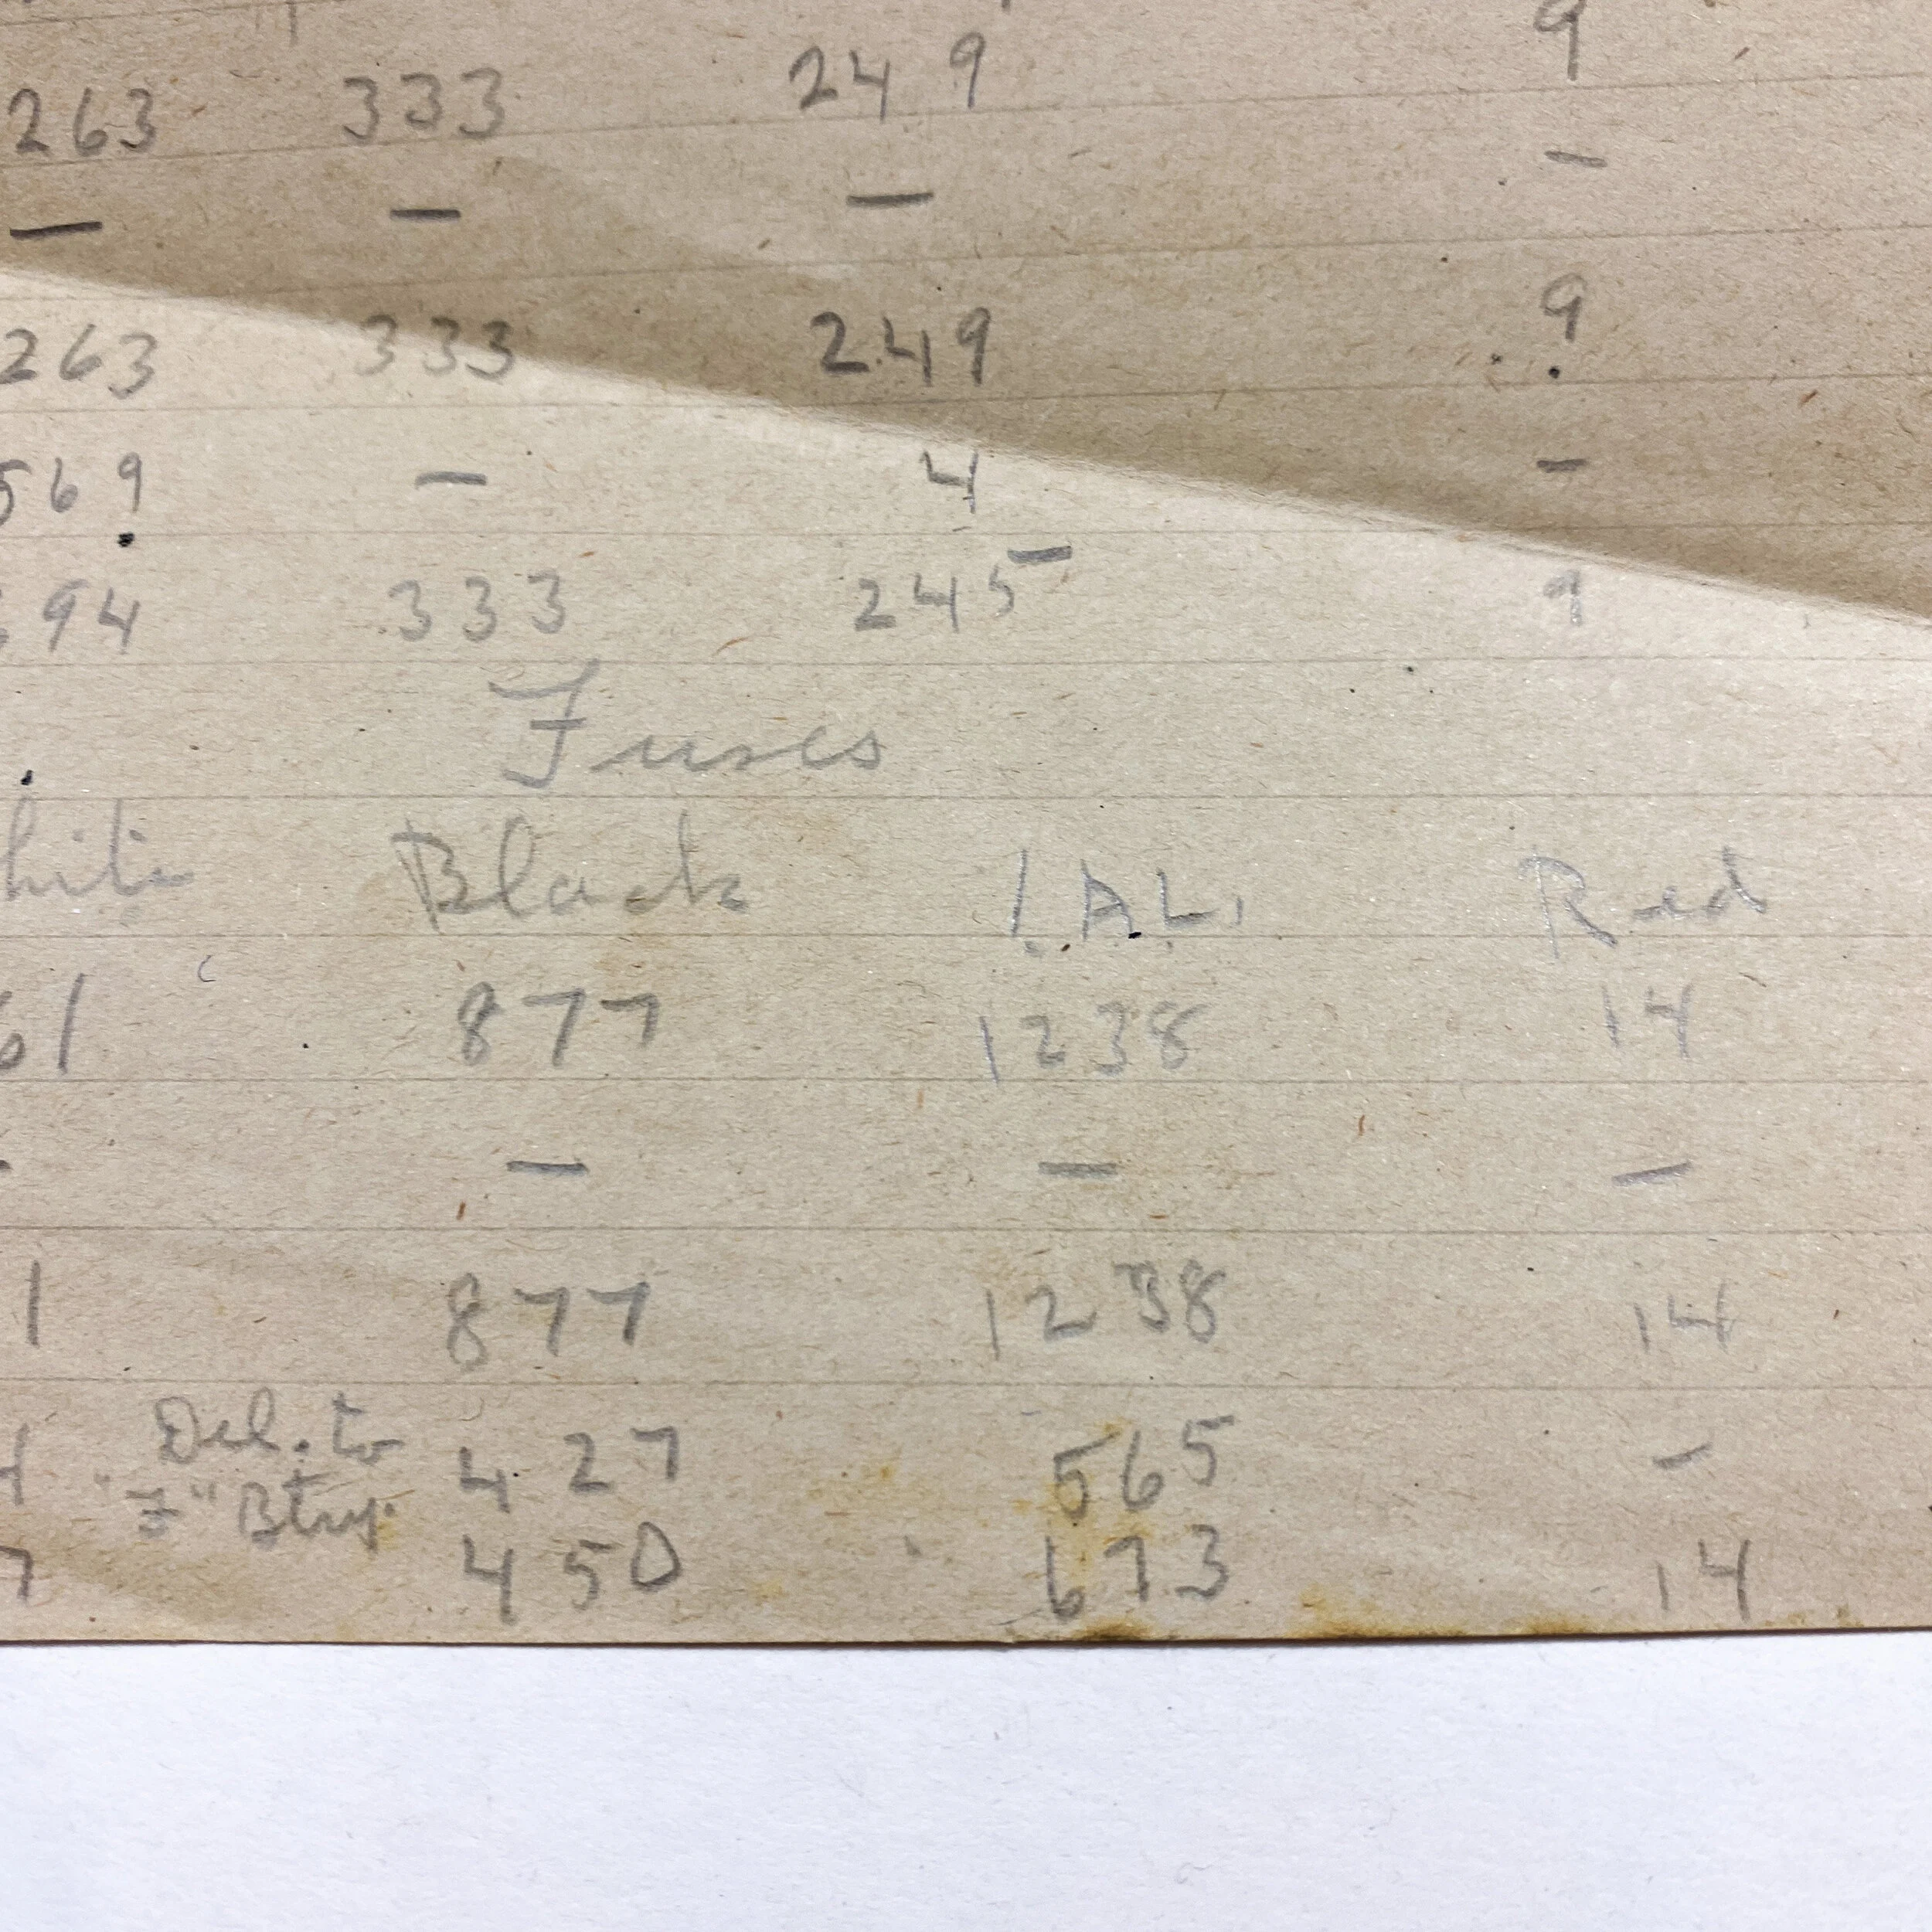 263 333 249 9
— — — —
263 333 249 9
569 — 4 —
94 333 245 9
Fuses
hite Black I.A.L. Red
61 877 1238 14
- — — —
1 877 1238 14
4 Del. to 427 565 —
F" Btry.
7 450 673 14